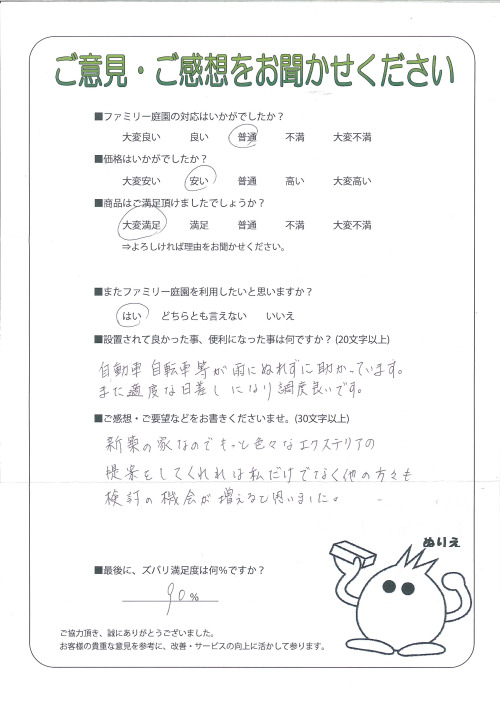 ご意見・ご感想をお聞かせください
■ファミリー庭園の対応はいかがでしたか？
大変良い 良い 普通 不満 大変不満
■価格はいかがでしたか？
大変安い 安い 普通 高い 大変高い
■商品はご満足頂けましたでしょうか？
大変満足 満足 普通 不満 大変不満
⇒よろしければ理由をお聞かせください。
■またファミリー庭園を利用したいと思いますか？
はい どちらとも言えない いいえ
■設置されて良かった事、便利になった事は何ですか？(20文字以上)
自動車 自転車等が雨にぬれずに助かっています。
また適度な日差しになり調度良いです。
■ご感想・ご要望などをお書きくださいませ。(30文字以上)
新築の家なのでもっと色々なエクステリアの
提案をしてくれれば私だけでなく他の方々も
検討の機会が増えると思いました。
ぬりえ
■最後に、ズバリ満足度は何％ですか？
90％
ご協力頂き、誠にありがとうございました。
お客様の貴重な意見を参考に、改善・サービスの向上に活かして参ります。